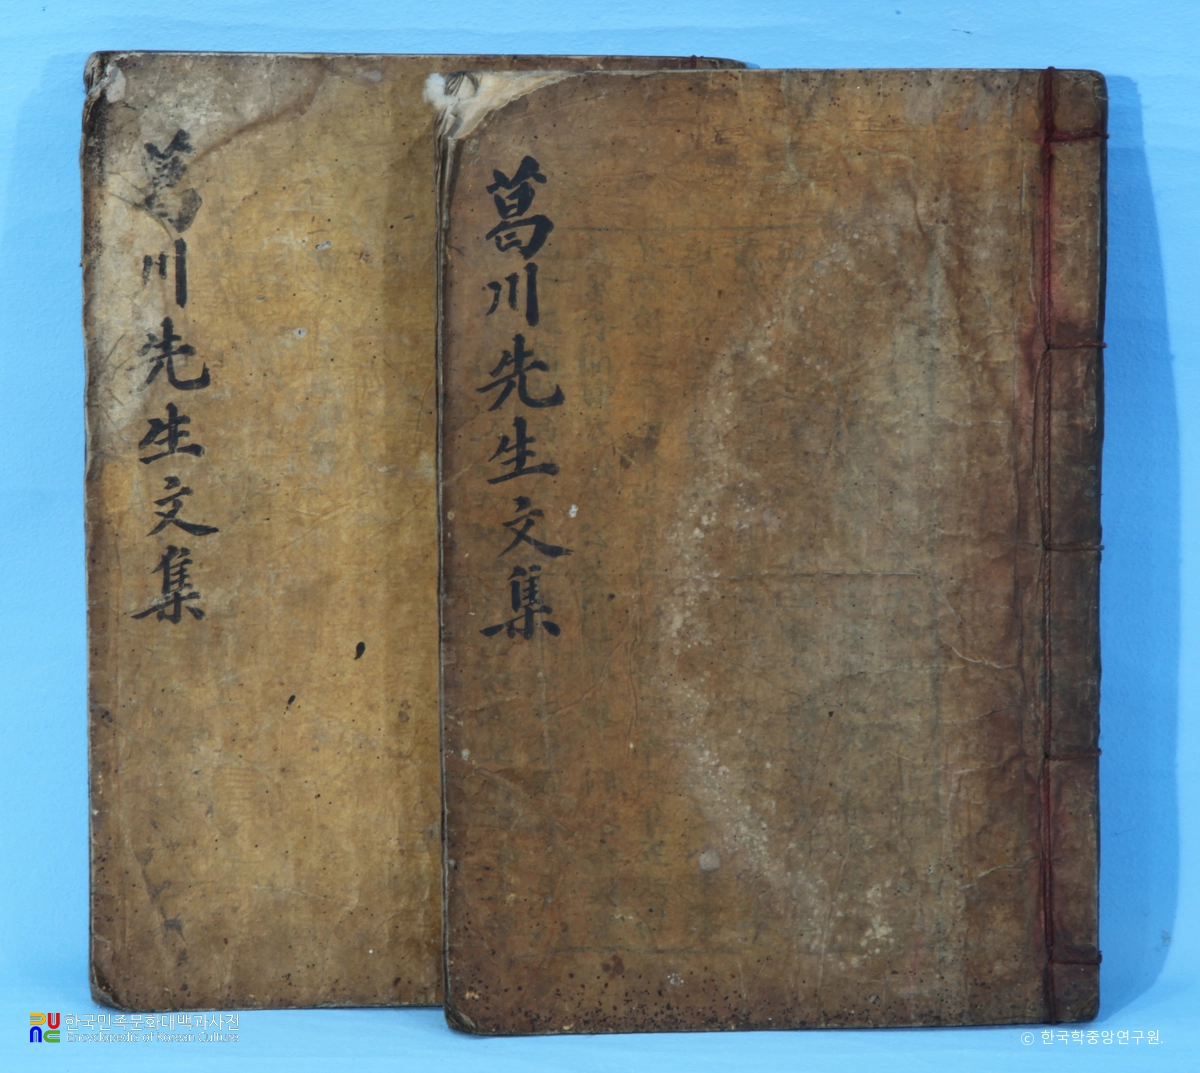 葛川先生文集
葛川先生文集
한국민족문화대백과사전
Encyclopedia of Korean Culture
© 한국학중앙연구원.